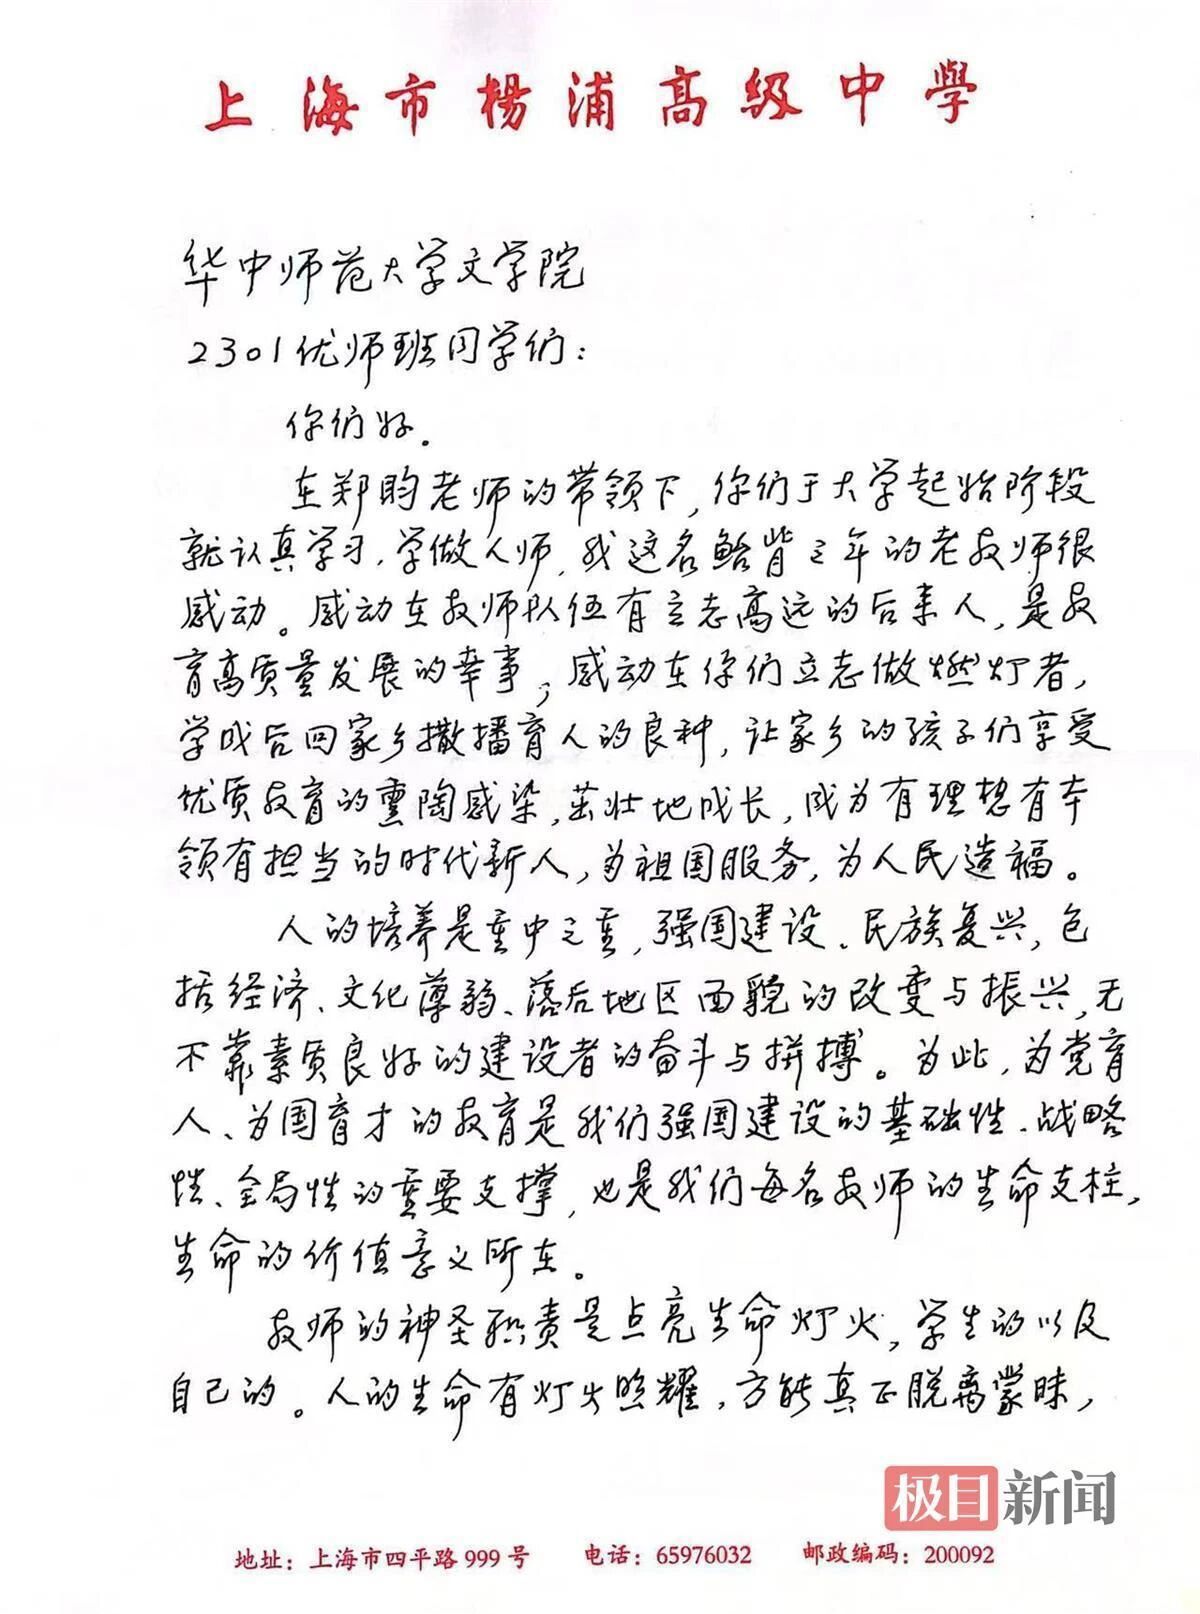 上海市杨浦高级中学
华中师范大学文学院
2301优师班同学们：
你们好。
在郑昀老师的带领下，你们于大学起始阶段
就认真学习，学做人师，我这名鲐背之年的老教师很
感动。感动在教师队伍有立志高远的后来人，是教
育高质量发展的幸事；感动在你们立志做燃灯者，
学成后回家乡撒播育人的良种，让家乡的孩子们享受
优质教育的熏陶感染，茁壮地成长，成为有理想有本
领有担当的时代新人，为祖国服务，为人民造福。
人的培养是重中之重，强国建设、民族复兴，包
括经济、文化薄弱、落后地区面貌的改变与振兴，无
不靠素质良好的建设者的奋斗与拼搏。为此，为党育
人、为国育才的教育是我们强国建设的基础性、战略
性、全局性的重要支撑，也是我们每名教师的生命支柱，
生命的价值意义所在。
教师的神圣职责是点亮生命灯火，学生的以及
自己的。人的生命有灯火照耀，方能真正脱离蒙昧，
极目新闻
地址：上海市四平路999号 电话：65976032 邮政编码：200092